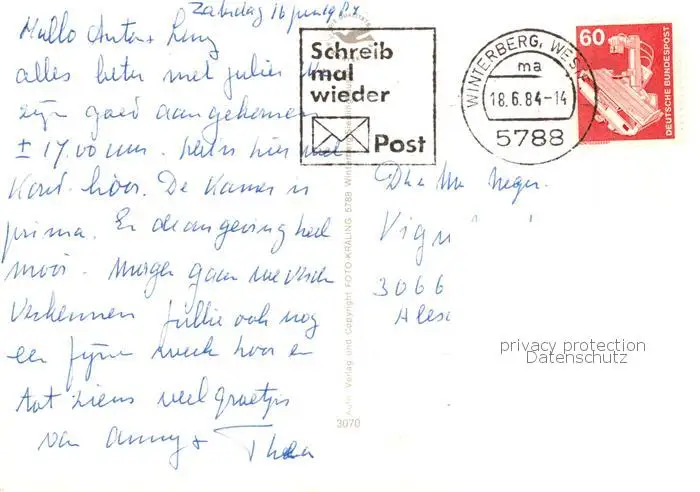 Zaterdag 16 juni 1984
Hallo Anton + Leny
alles beter met jullie
zijn goed aangekomen
± 17.00 uur. hier
koud hoor. De kamer is
prima. En de omgeving heel
mooi. Morgen gaan we
verkennen jullie ook nog
een fijne week hoor en
tot ziens veel groetjes
van Anny + Thea
Schreib
mal
wieder
Post
WINTERBERG, WEST
ma
18.6.84-14
5788
60
DEUTSCHE BUNDESPOST
Meger.
Vign
3066
privacy protection
Datenschutz
Verlag und Copyright FOTO-KRALING, 5788 Winterberg
3070